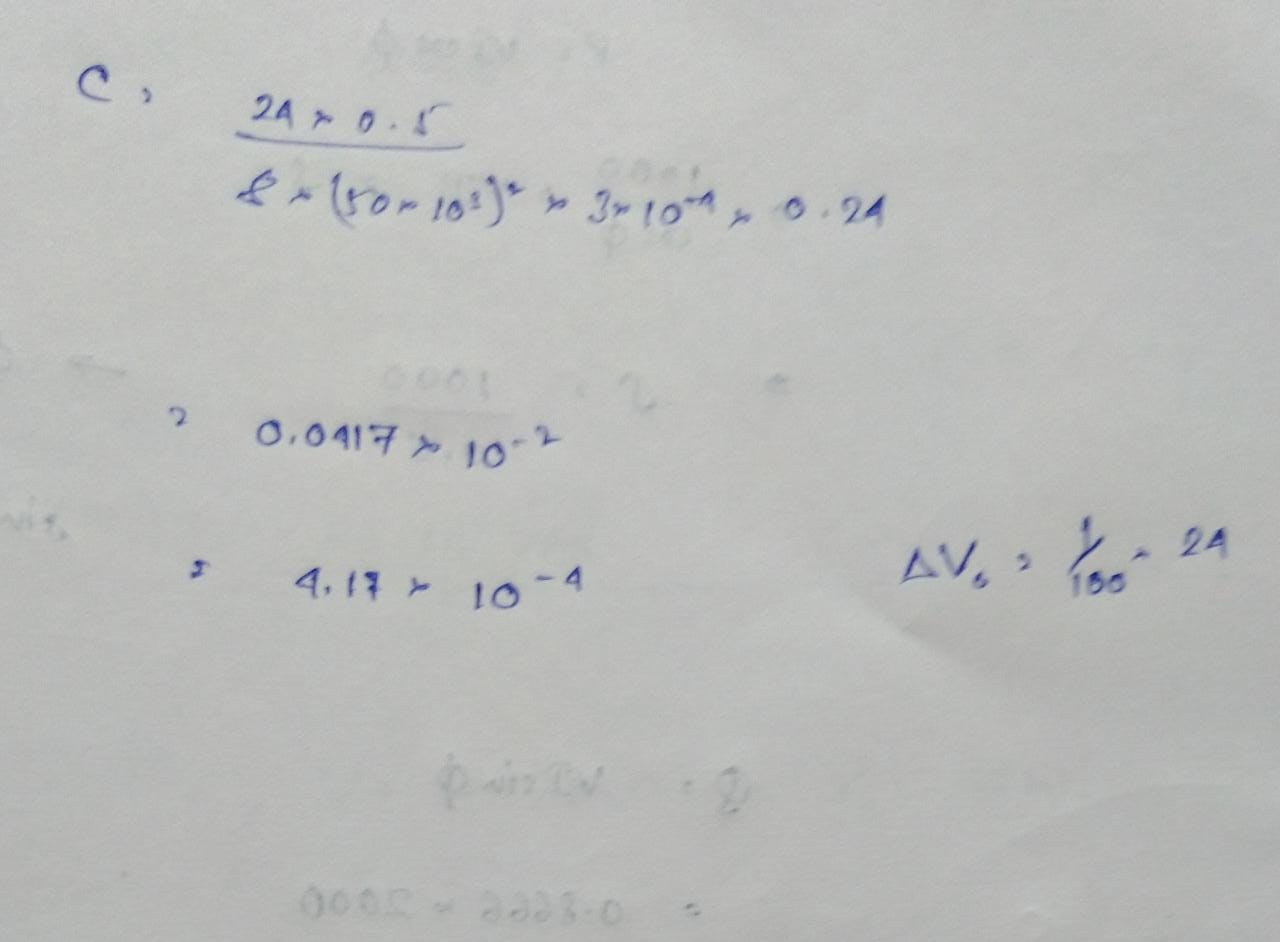 C = 24 × 0.5
8 × (50 × 10³)² × 3 × 10⁻⁴ × 0.24
= 0.0417 × 10⁻²
= 4.17 × 10⁻⁴
ΔV₀ = 1/100 × 24